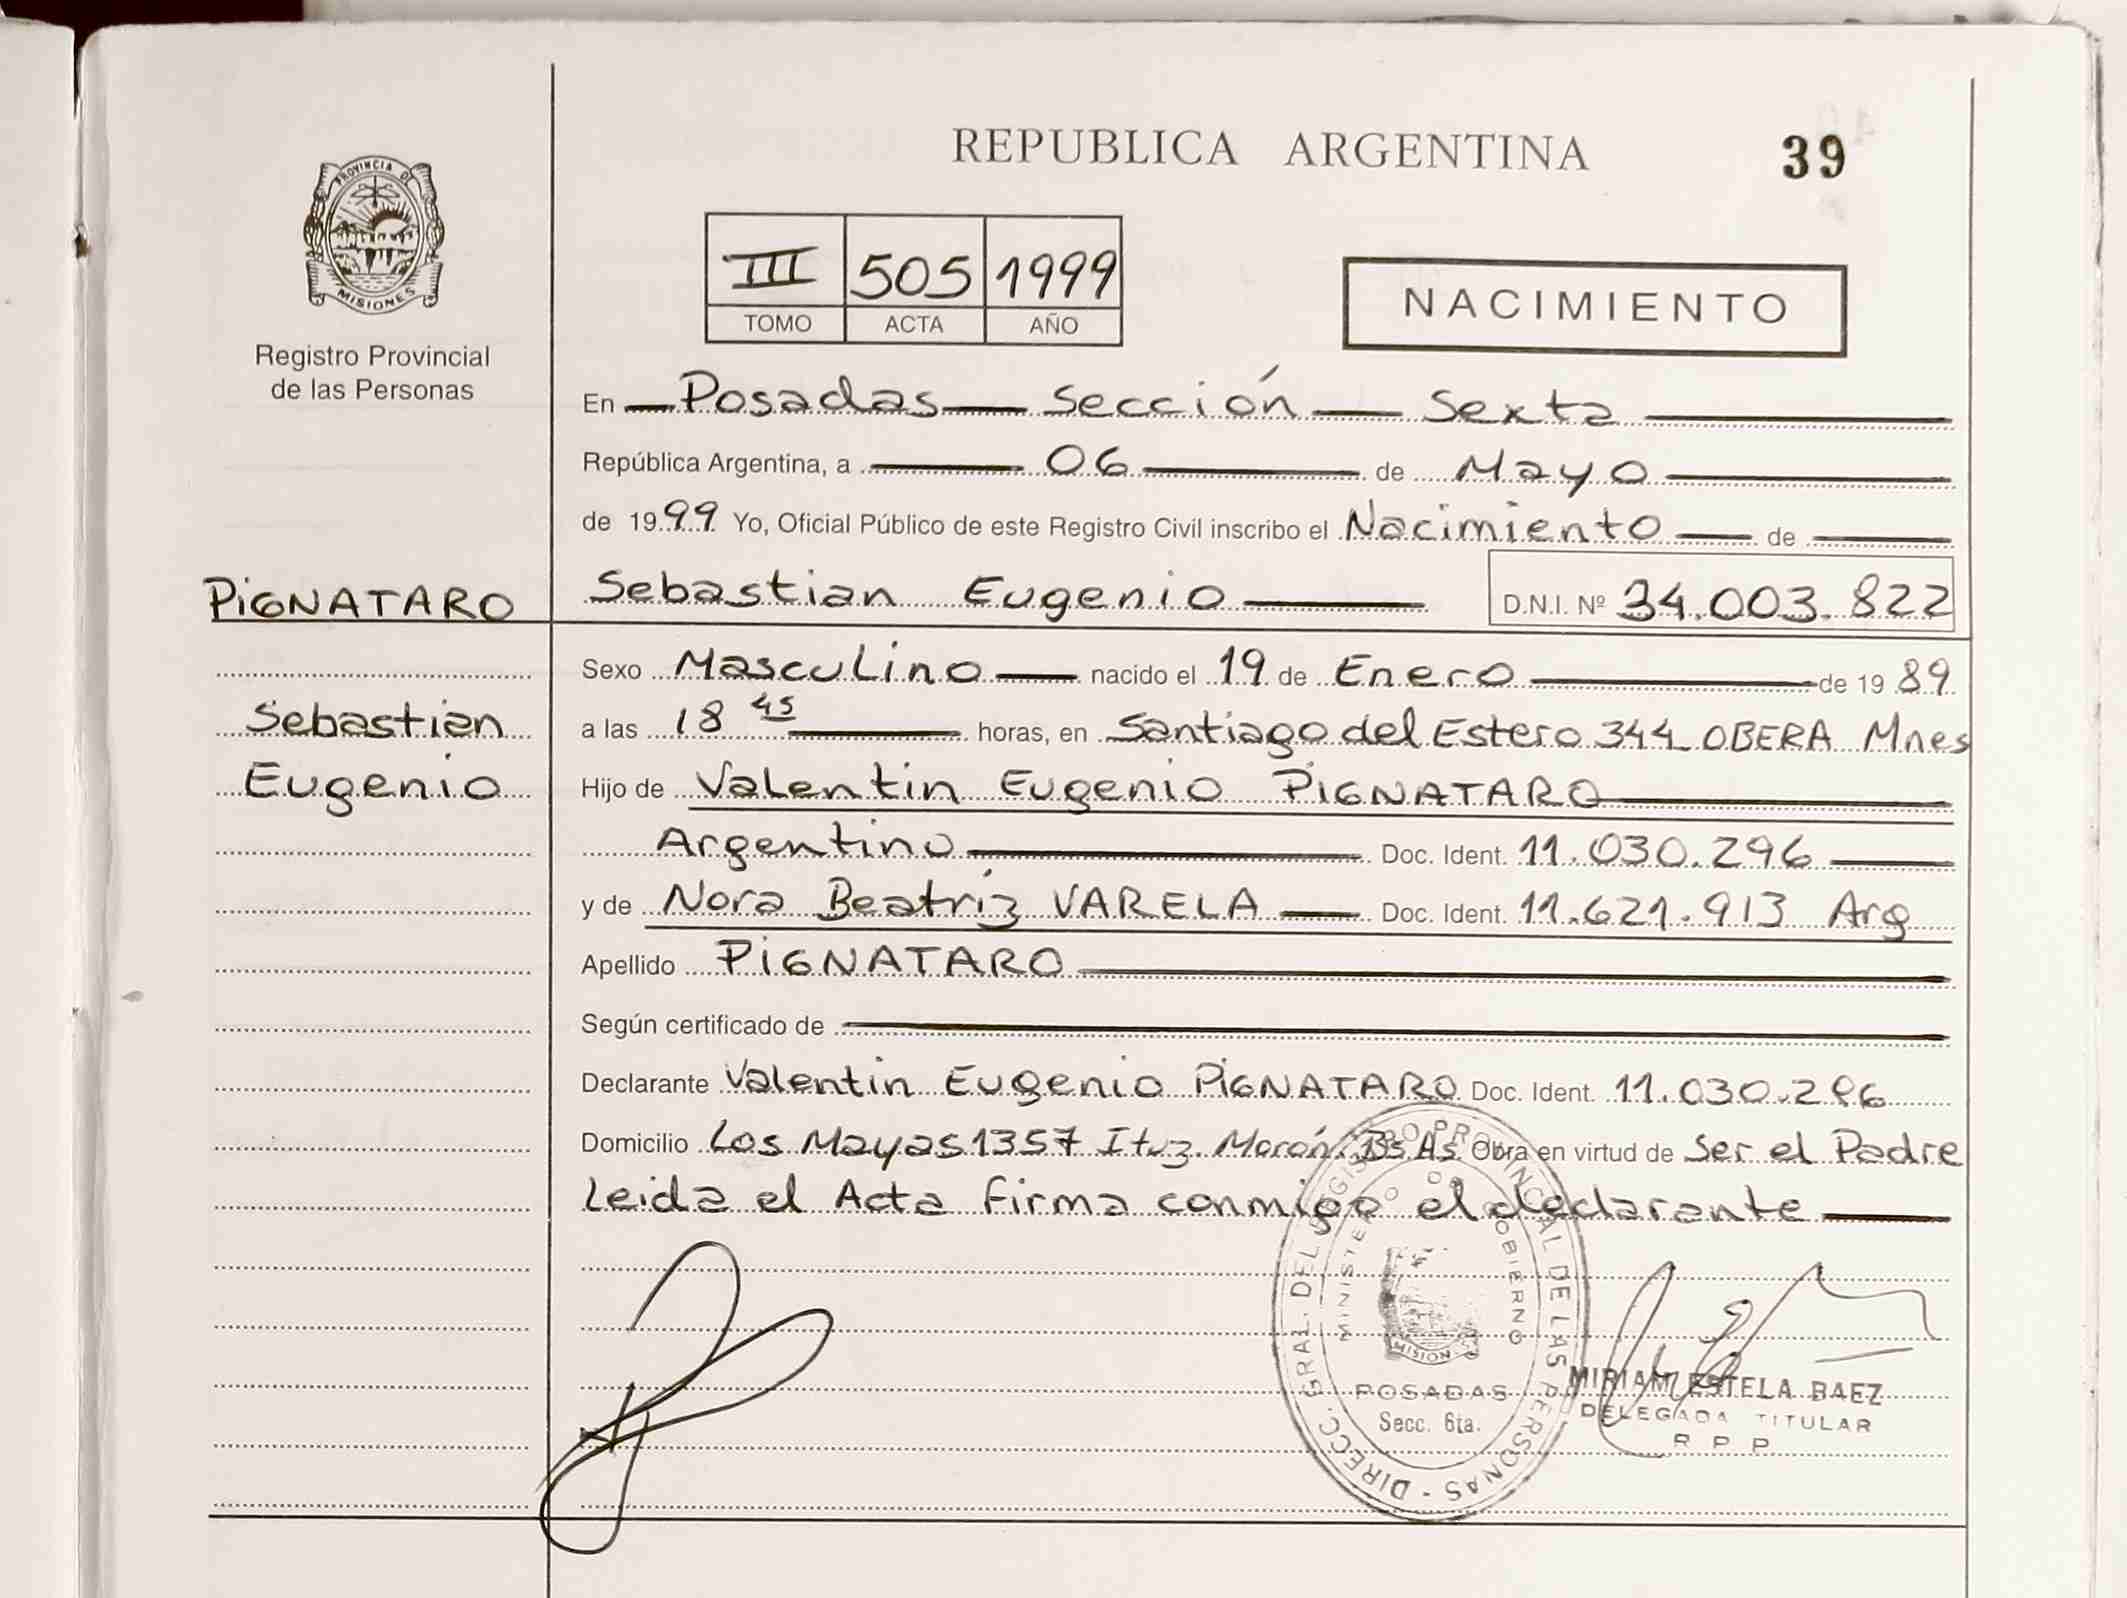 REPUBLICA ARGENTINA
39
PROVINCIA DE
MISIONES
Registro Provincial
de las Personas
III 505 1999
TOMO ACTA AÑO
NACIMIENTO
En Posadas Sección Sexta
República Argentina, a 06 de Mayo
de 1999 Yo, Oficial Público de este Registro Civil inscribo el Nacimiento de
PIGNATARO
Sebastian Eugenio D.N.I. Nº 34.003.822
Sexo Masculino nacido el 19 de Enero de 1989
Sebastian
a las 18 45 horas, en Santiago del Estero 344 OBERA Mnes
Eugenio
Hijo de Valentin Eugenio PIGNATARO
Argentino Doc. Ident. 11.030.296
y de Nora Beatriz VARELA Doc. Ident. 11.621.913 Arg
Apellido PIGNATARO
Según certificado de
Declarante Valentin Eugenio PIGNATARO Doc. Ident. 11.030.296
Domicilio Los Mayas 1357 Ituz. Morón. Bs As. Obra en virtud de Ser el Padre
Leida el Acta Firma conmigo el declarante
DIRECC. GRAL. DEL REGISTRO PROVINCIAL DE LAS PERSONAS -
MINISTERIO DE GOBIERNO
MISION
POSADAS
Secc. 6ta.
MIRIAM ESTELA BAEZ
DELEGADA TITULAR
R P P